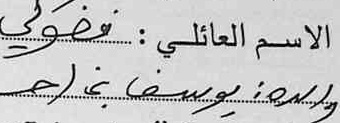 الاسم العائلي : فضولي
والده : يوسف بن احمد